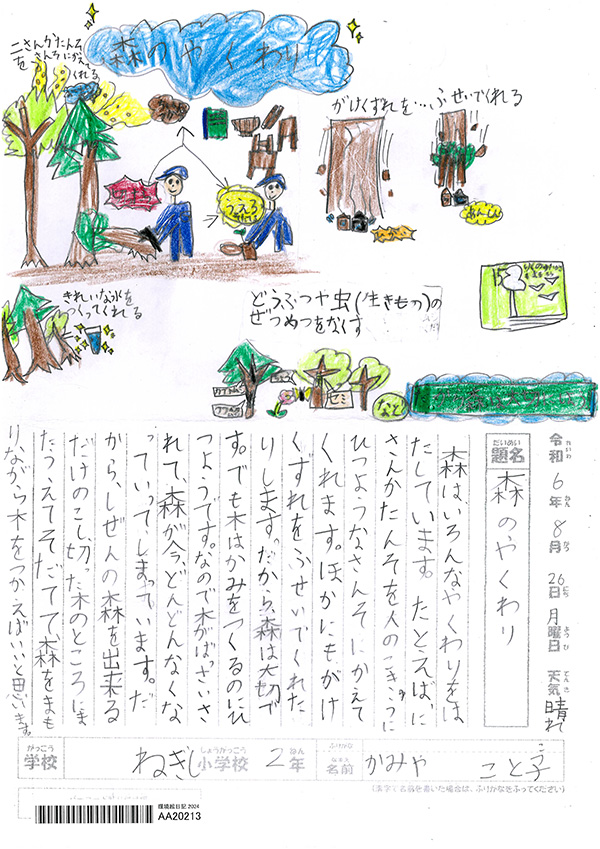 森のやくわり
二さんかたんそ
をさんそにかえて
くれる
がけくずれを…ふせいでくれる
あんしん
きれいな水を
つくってくれる
どうぶつや虫(生きもの)の
ぜつめつをなくす
15
セミ
など
令和6年8月26日月曜日 天気晴れ
れいわ ねん がつ にち ようび てんき
だいめい
題名
森のやくわり
森はいろんなやくわりをは
たしています。たとえば、に
さんかたんそを人のこきゅうに
ひつようなさんそにかえて
くれます。ほかにもがけ
くずれをふせいでくれた
りします。だから、森は大切で
す。でも木はかみをつくるのにひ
つようです。なので木がばっさいさ
れて、森が今、どんどんなくな
っていってしまっています。だ
から、しぜんの森を出来る
だけのこし、切った木のところにま
たうえてそだてて、森をまも
りながら木をつかえばいいと思います。
がっこう しょうがっこう ねん ふりがな こ
学校 ねぎし小学校 2年 名前 かみや こと子
なまえ
(漢字で名前を書いた場合は、ふりがなをふってください)
環境絵日記 2024
AA20213